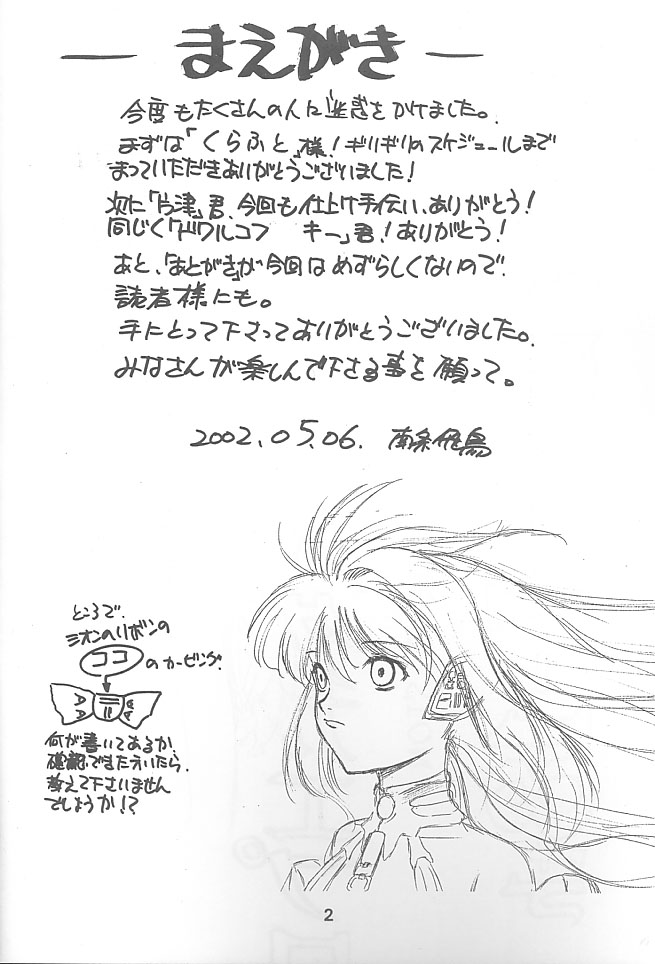 まえがき
今度もたくさんの人に迷惑をかけました。
まずは「くらふと」様!ギリギリのスケジュールまで
まっていただきありがとうございました!
次に「片津」君、今回も仕上げ手伝い、ありがとう!
同じく「ドワルコフ キー」君!ありがとう!
あと、「あとがき」が今回はめずらしくないので、
読者様にも。
手にとって下さってありがとうございました。
みなさんが楽しんで下さる事を願って。
2002.05.06. 南条飛鳥
ところで、
シオンのリボンの
ココ のカービング、
何が書いてあるか、
確認できた方いたら、
教えて下さいません
でしょうか!?
2